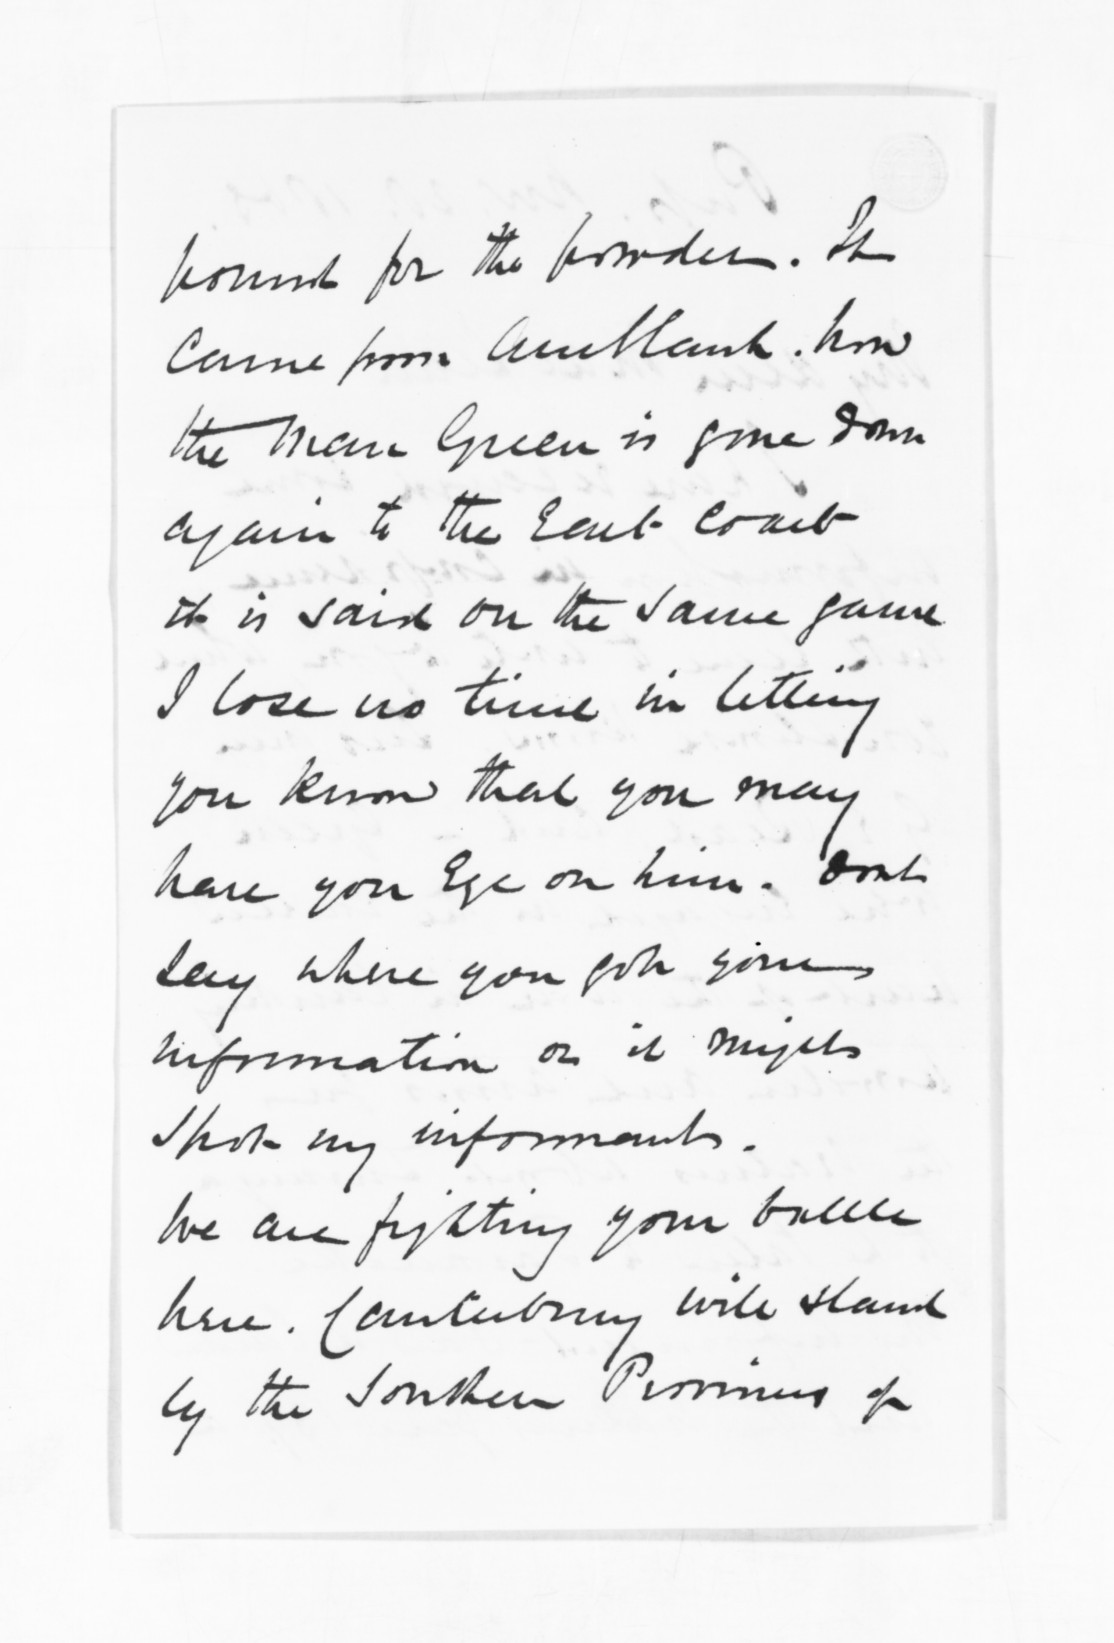 pound for the powder. It
came from Auckland. Now
the man Green is gone down
again to the East Coast
it is said on the same game
I lose no time in letting
you know that you may
have you Eye on him. Dont
say where you got your
information or it might
spot my informants.
We are fighting your battle
here. Canterbury will stand
by the Southern Provinces if